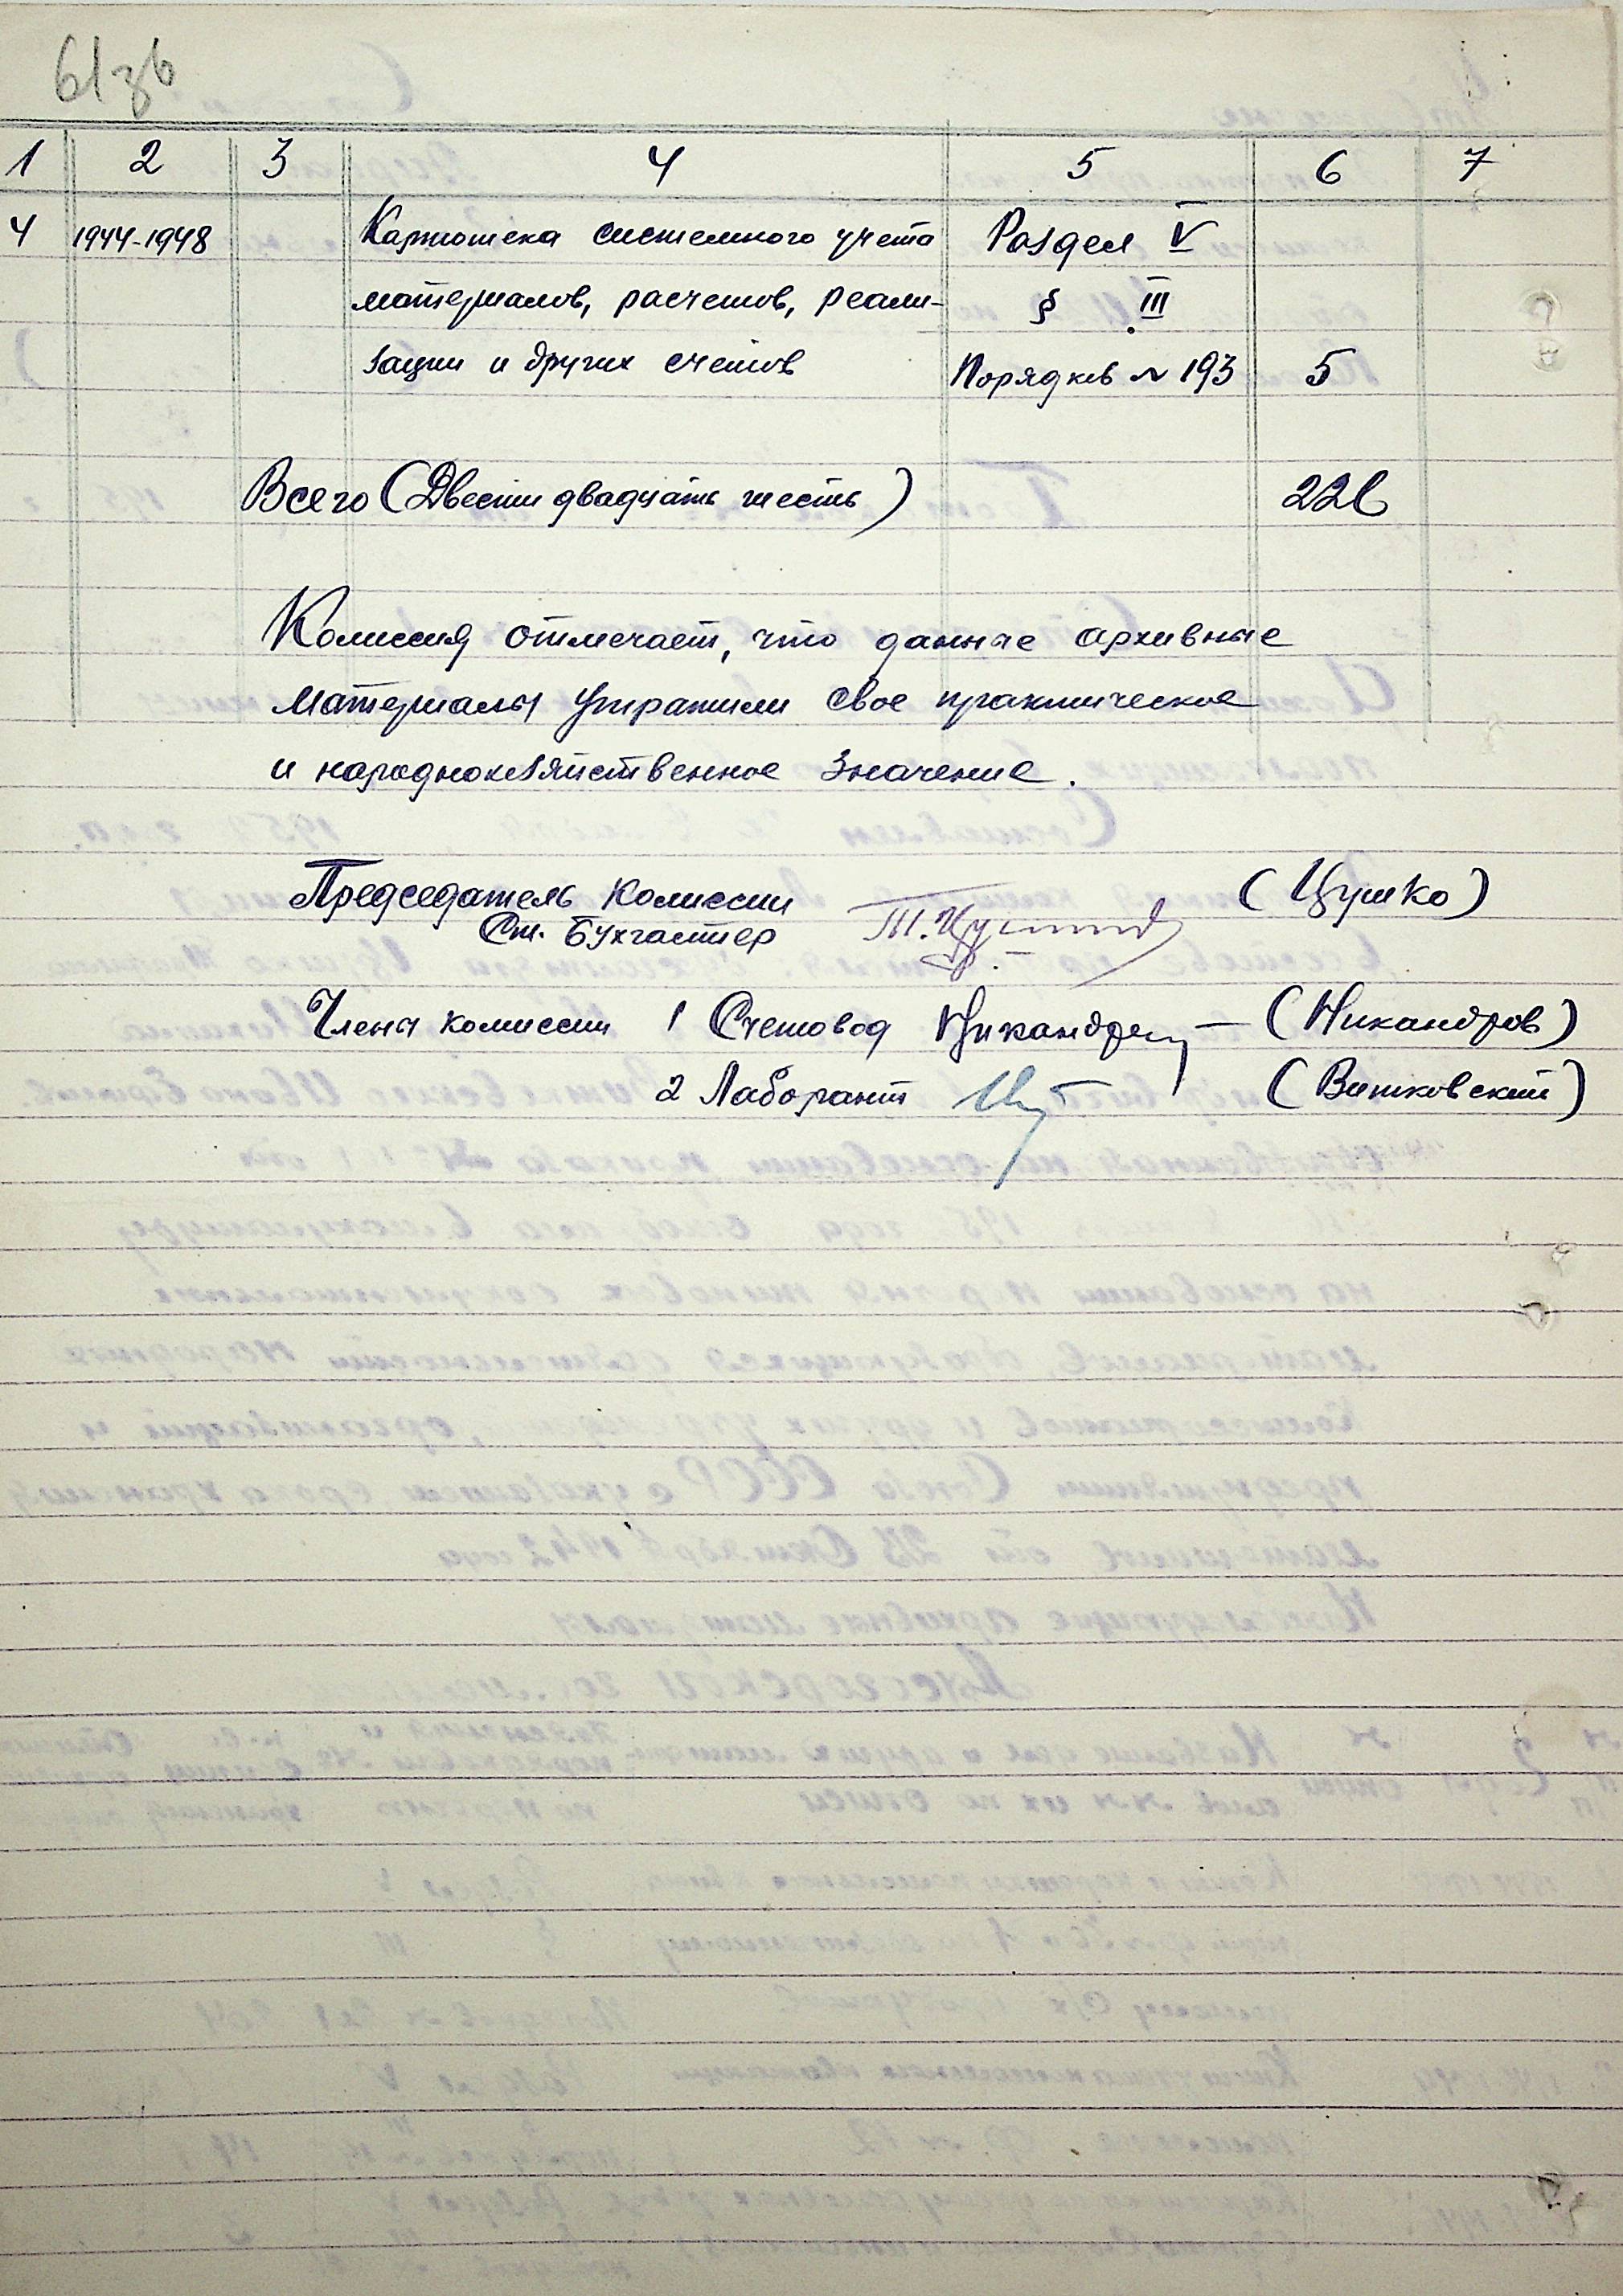 61зв
1 2 3 4 5 6 7
4 1944-1948 Картотека системного учета Раздел V
материалов, расчетов, реали- § III
зации и других счетов Порядков N 193 5
Всего (Двести двадцать шесть) 226
Комиссия отмечает, что данные архивные
материалы утратили свое практическое
и народнохозяйственное значение.
Председатель комиссии (Цушко)
Ст. Бухгалтер Т. Цушко
Члены комиссии 1 Счетовод Никандров — (Никандров)
2 Лаборант (Витковский)